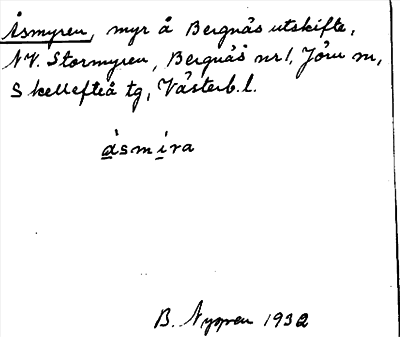 Åsmyren, myr å Bergnäs utskifte,
NV. Stormyren, Bergnäs nr 1, Jörn sn,
Skellefteå tg, Västerb. l.
åsmira
B. Nygren 1932